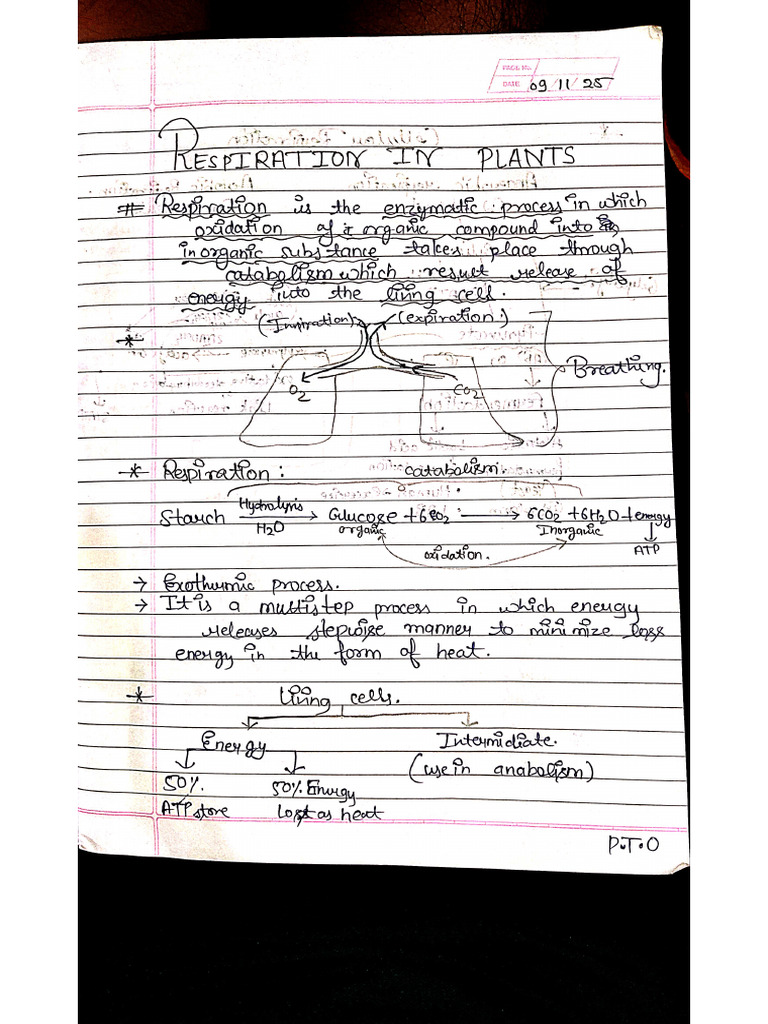 PAGE No.
DATE 09/11/25
RESPIRATION IN PLANTS
# Respiration is the enzymatic process in which
oxidation of organic compound into
inorganic substance takes place through
catabolism which result release of
energy into the living cell.
(Inspiration) (expiration)
*
O2 CO2 Breathing.
* Respiration: catabolism.
Starch Hydrolysis H2O → Glucose + 6O2 → 6CO2 + 6H2O + energy
organic Inorganic
oxidation. ATP
→ Exothermic process.
→ It is a multistep process in which energy
releases stepwise manner to minimize loss
energy in the form of heat.
* Living cells.
Energy Intermidiate.
(use in anabolism)
50%. 50% Energy
ATP store Lost as heat
P.T.O